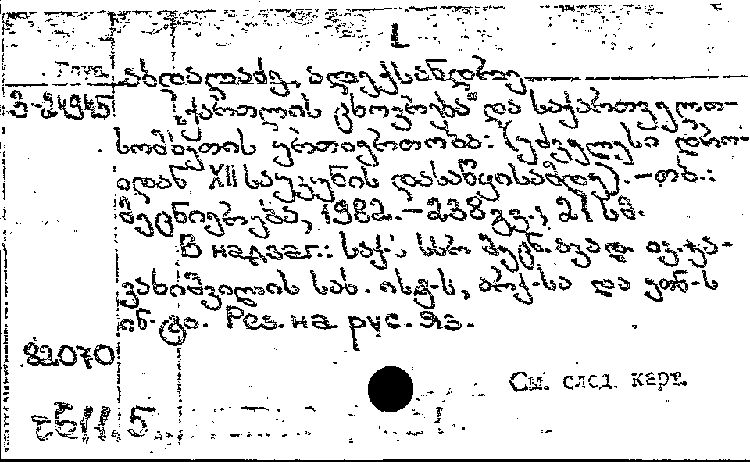 აბდალაძე, ალექსანდრე
3-24945 „ქართლის ცხოვრება" და საქართველო-
სომხეთის ურთიერთობა: (უძველესი დრო-
იდან XII საუკუნის დასაწყისამდე). – თბ.:
მეცნიერება, 1982. – 238 გვ.; 21 სმ.
В надзаг.: საქ. სსრ მეცნ. აკად. ივ. ჯა-
ვახიშვილის სახ. ისტ-ს, არქ-სა და ეთნ-ს
ინ-ტი. Рез. на рус. яз.
82070
См. след. карт.